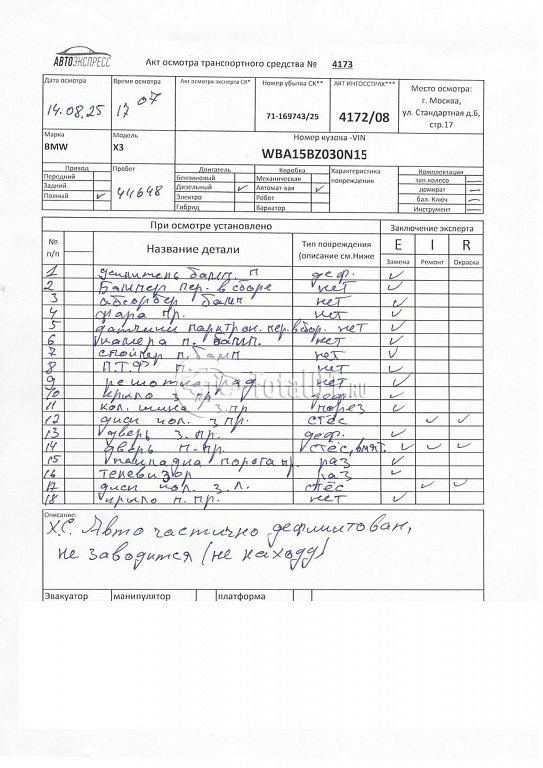 АВТОЭКСПРЕСС
Акт осмотра транспортного средства № 4173
Дата осмотра
14.08.25
Время осмотра
17 07
Акт осмотра эксперта СК*
Номер убытка СК**
71-169743/25
АКТ ИНГОССТРАХ***
4172/08
Место осмотра:
г. Москва,
ул. Стандартная д.6,
стр.17
Марка
BMW
Модель
X3
Номер кузова -VIN
WBA15BZ030N15
Привод
Передний
Задний
Полный ✓
Пробег
44648
Двигатель
Бензиновый
Дизельный ✓
Электро
Гибрид
Коробка
Механическая
Автомат-кая ✓
Робот
Вариатор
Характеристика
повреждения
Комплектация
зап.колесо —
домкрат —
бал. Ключ ✓
Инструмент —
При осмотре установлено
Заключение эксперта
№
п/п
Название детали
Тип повреждения
(описание см.Ниже
E I R
Замена Ремонт Окраска
1 усилитель бамп. п деф. ✓
2 Бампер пер. в сборе нет ✓
3 абсорбер бамп нет ✓
4 фара пр. нет ✓
5 датчики парктрон. пер. в сбор. нет ✓
6 камера п. бамп. нет ✓
7 спойлер п. бамп нет ✓
8 П.Т.Ф п нет ✓
9 решотка рад нет ✓
10 крыло з пр деф ✓
11 кол. шина з. пр порез ✓
12 диск кол. з пр. стёс ✓ ✓
13 дверь з. пр. деф. ✓
14 дверь п. пр. стёс, вмят. ✓ ✓ ✓
15 накладка порога пр. раз ✓
16 телевизор раз ✓
17 диск кол. з. л. стёс ✓ ✓
18 крыло п. пр. нет ✓
Описание:
Х.С. Авто частично дефлинтован,
не заводится (не на ходу)
Эвакуатор манипулятор платформа